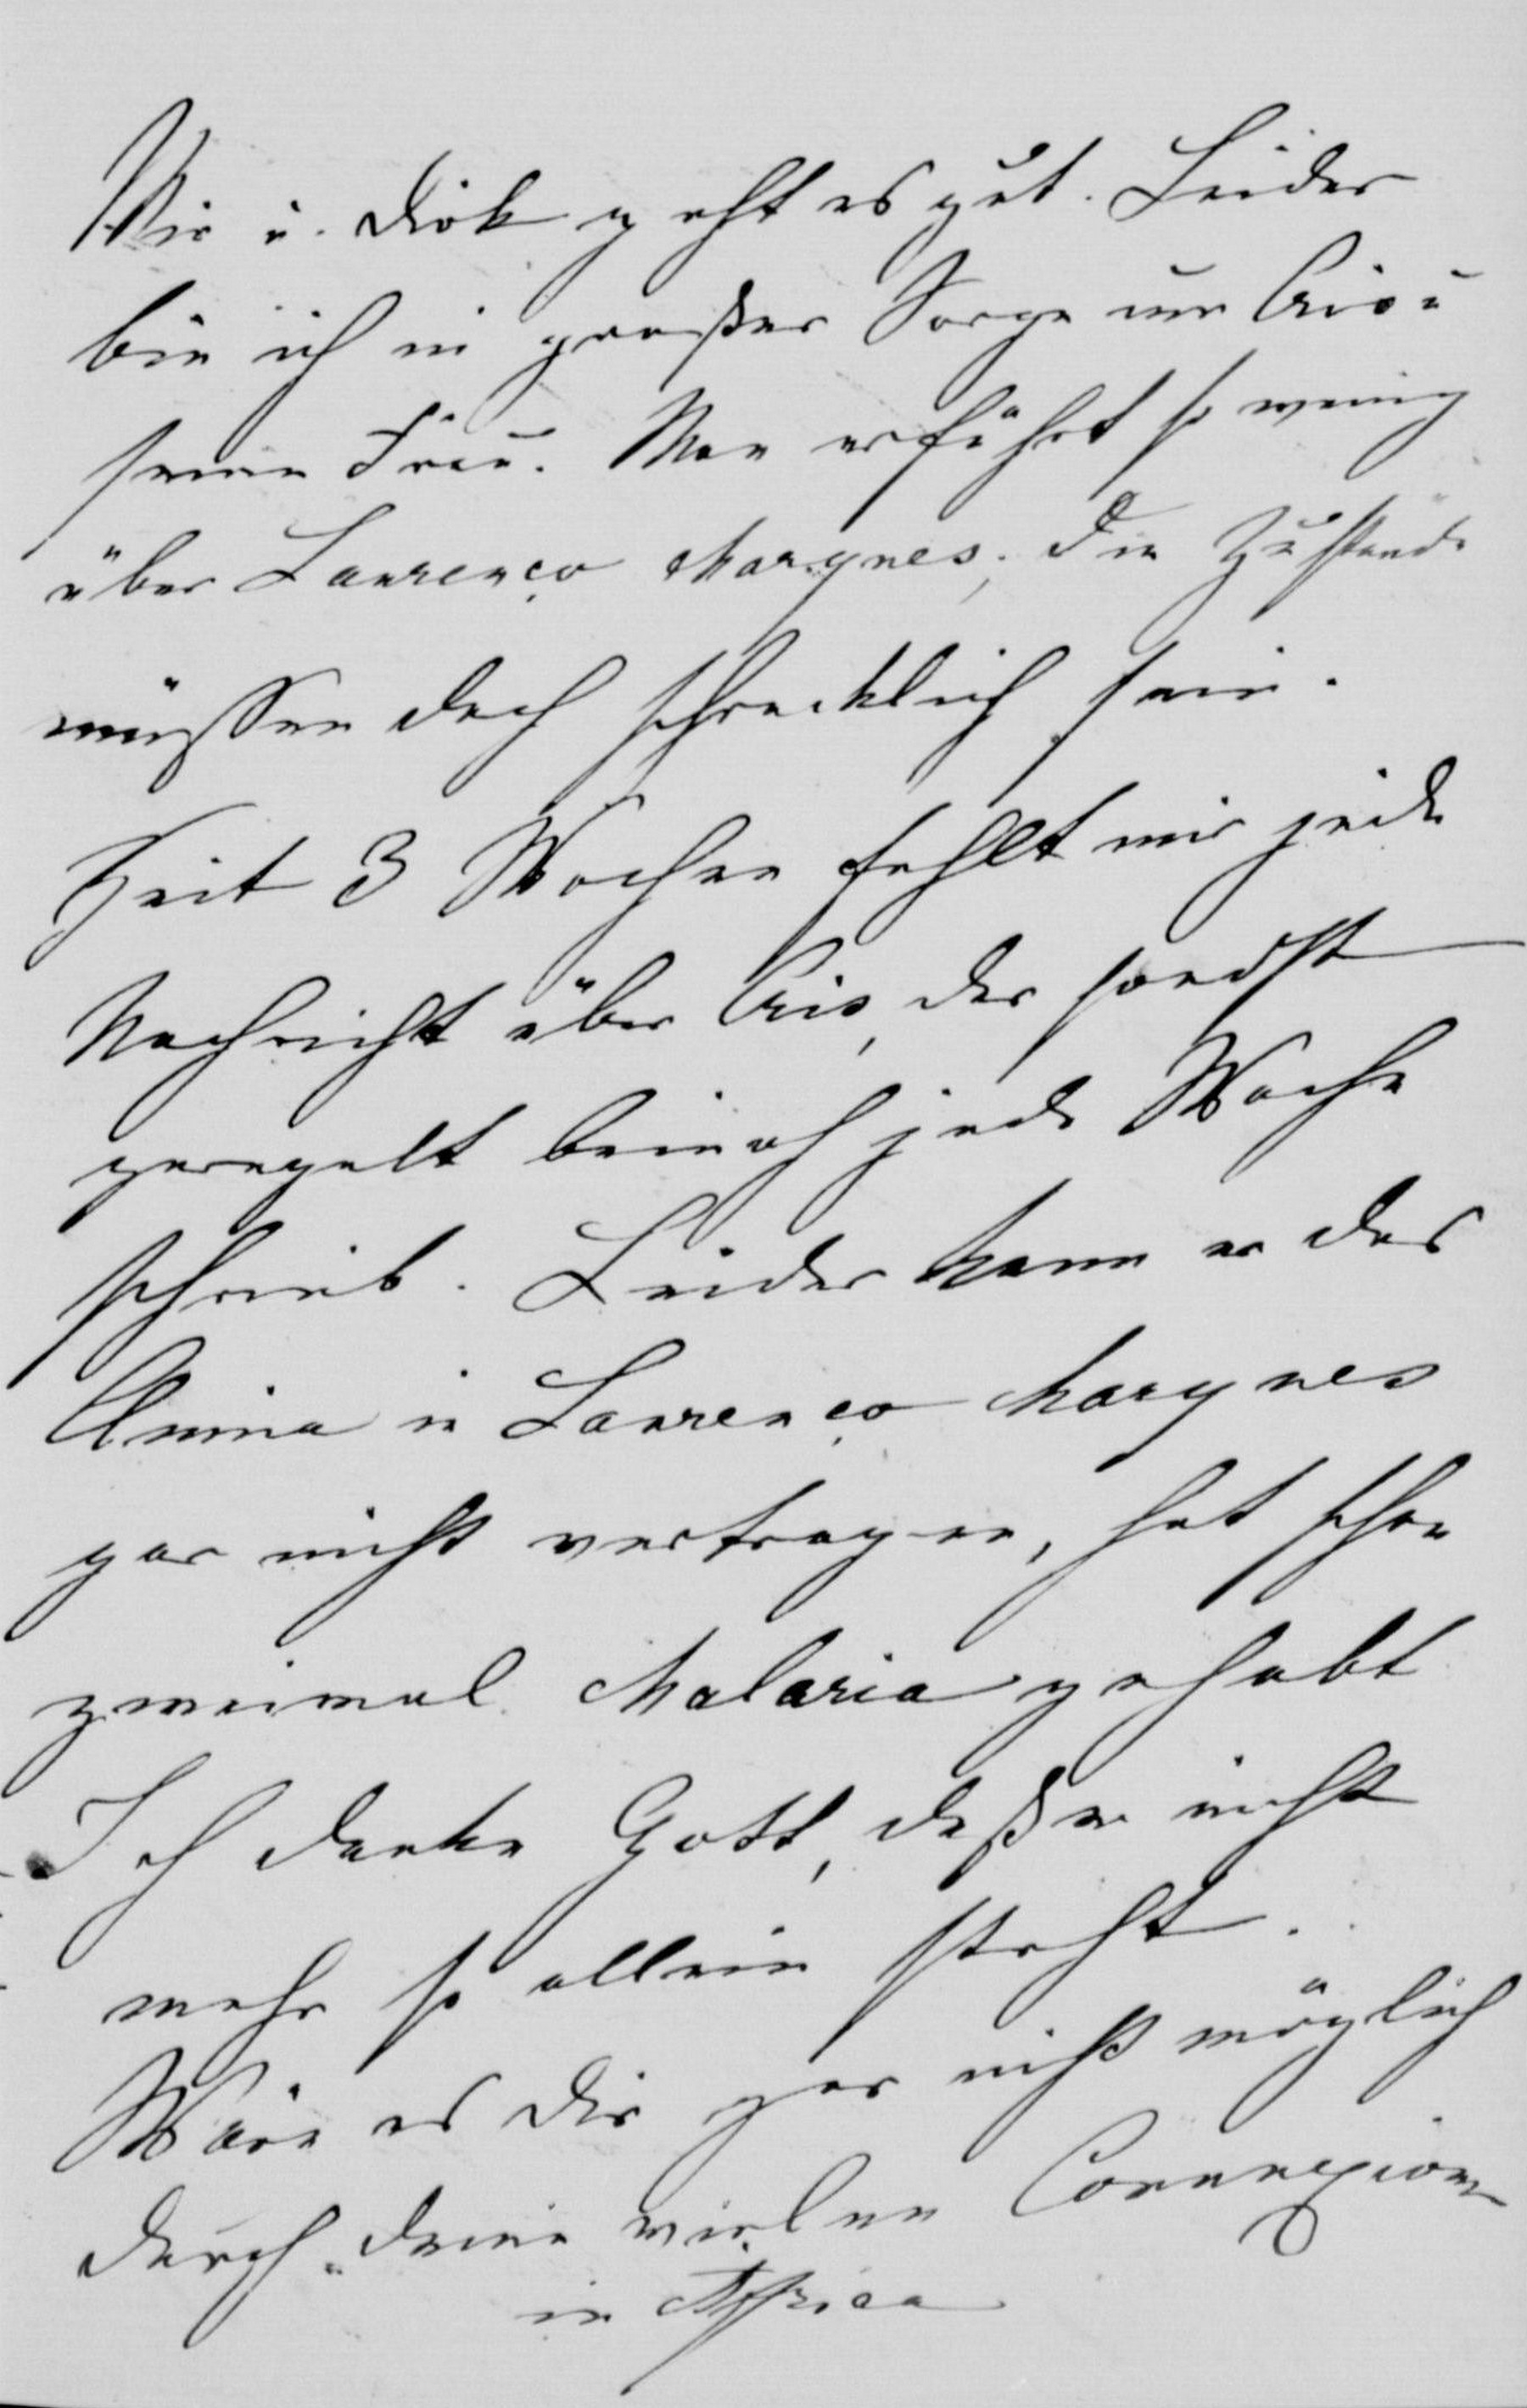 Mir u. Dirk geht es gut. Leider
bin ich in großer Sorge um Cris u
seine Frau. Man erfährt so wenig
über Laurenço Marques; die Zustände
müssen doch schrecklich sein.
Seit 3 Wochen fehlt mir jede
Nachricht über Cris, der sonst
geregelt beinah jede Woche
schrieb. Leider kann er das
Clima in Laurenço Marques
gar nicht vertragen, hat schon
zweimal Malaria gehabt
Ich danke Gott, daß er nicht
mehr so allein steht.
Wäre es dir gar nicht möglich
durch deine vielen Connexionen
in Africa